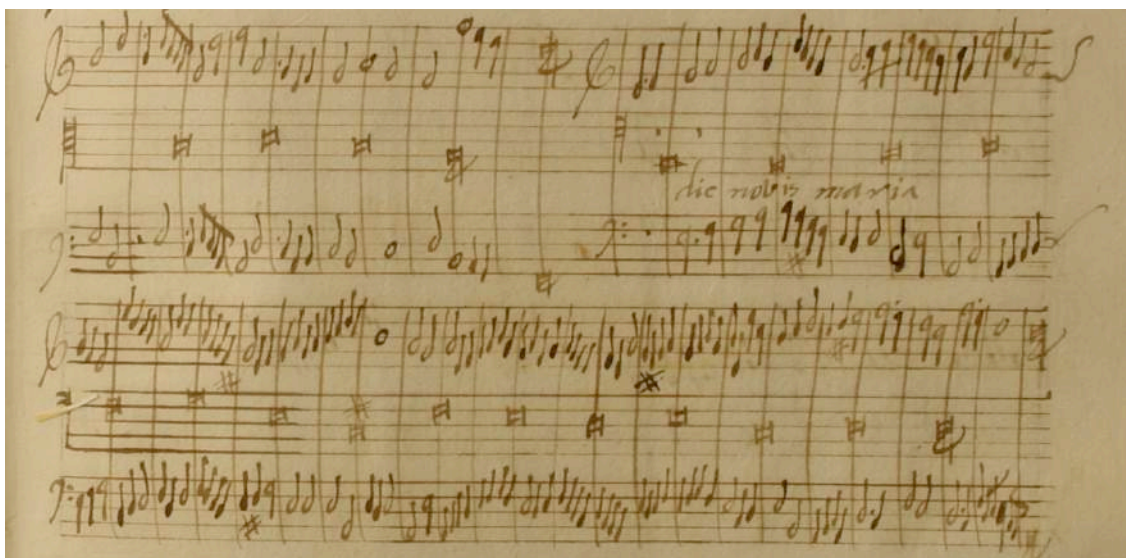 dic nobis maria